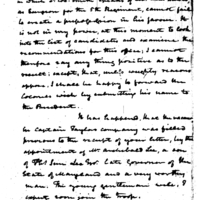 as Surgeon for the 5th Regiment, cannot fail
to create a prepossession in his favour. It
is not in my power, at this moment to look
into the list of candidates and examine the
recommendations for this office; I cannot
therefore say any thing positive as to the
result; except, that, unless weighty reasons
oppose, I shall be happy to forward the
Colonel's wish by submitting his name to
the President.
It has happened, that the vacancy
in Captain Taylors company was filled
previous to the receipt of your letter, by the
appointment of Mr Archibald Lee, a son
of Thos Sim Lee Esqr late Governor of the
State of Maryland and a very worthy
man. The young gentleman will, I
expect soon join the troop.